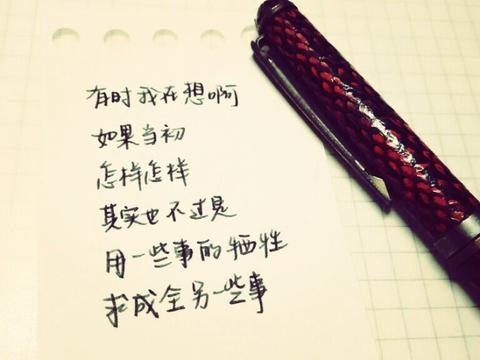 有时我在想啊
如果当初
怎样怎样
其实也不过是
用一些事的牺牲
求成全另一些事